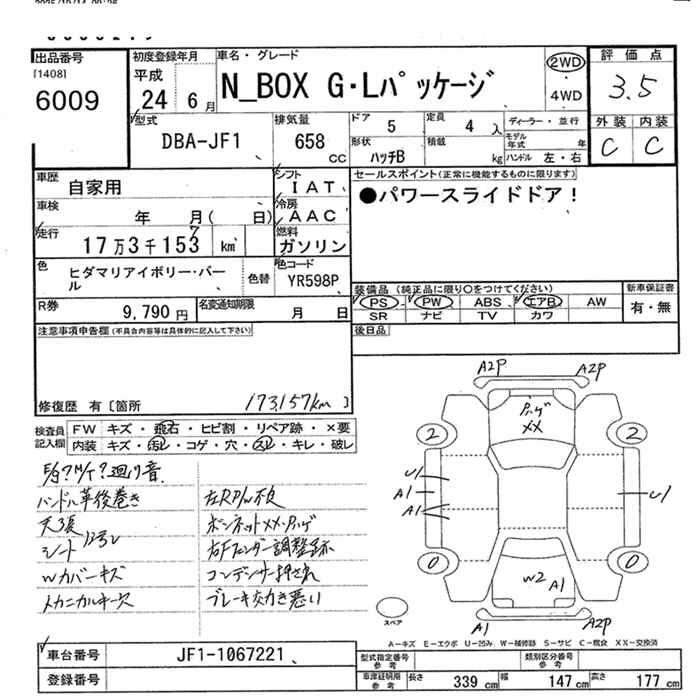 出品番号
[1408]
6009
初度登録年月
平成
24 6月
車名・グレード
N_BOX G・Lパッケージ
2WD
4WD
評価点
3.5
外装 内装
C C
型式
DBA-JF1
排気量
658
CC
ドア 5
定員 4 人
形状 ハッチB
積載 kg
ディーラー・並行
モデル年式 年
ハンドル 左・右
車歴
自家用
シフト
IAT
セールスポイント(正常に機能するものに限ります)
●パワースライドドア!
車検
年 月( 日)
冷房
AAC
走行
17万3千153 km
7
燃料
ガソリン
色
ヒダマリアイボリー・パール
色替
色コード
YR598P
装備品(純正品に限り○をつけてください)
PS PW ABS エアB AW
SR ナビ TV カワ
新車保証書
有・無
R券
9,790円
名変通知期限
月 日
後日品
注意事項申告欄(不具合内容等は具体的に記入して下さい)
修復歴 有〔箇所
173,157km
検査員
記入欄
FW キズ・飛石・ヒビ割・リペア跡・×要
内装 キズ・汚レ・コゲ・穴・スレ・キレ・破レ
ハンドル革後巻き
天張
シート
Wカバーキズ
メカニカルキー欠
左RP/W不良
ボンネットXX・ハゲ
右Fフェンダー調整跡
コンデンサー押され
ブレーキ効き悪い
A2P A2P
ハゲ
XX
2 2
U1
A1
A1
U1
0 0
W2 A1
A1 A2P
スペア
A-キズ E-エクボ U-凹み W-補修跡 S-サビ C-腐食 XX-交換済
車台番号
JF1-1067221
登録番号
型式指定番号
参考
類別区分番号
参考
車津証明用
参考
長さ 339 cm
幅 147 cm
高さ 177 cm